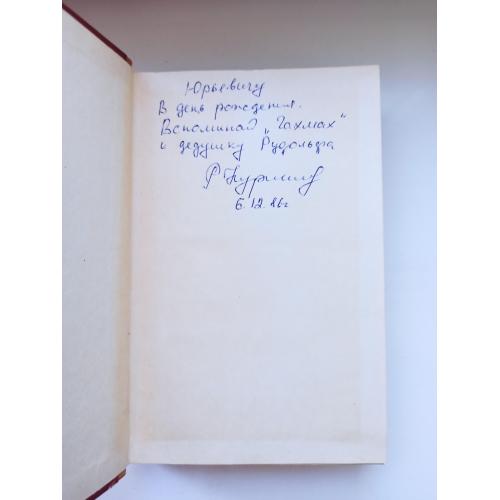 Юрьевичу
В день рождения.
Вспоминай „Чахмах"
и дедушку Рудольфа
6.12.86г